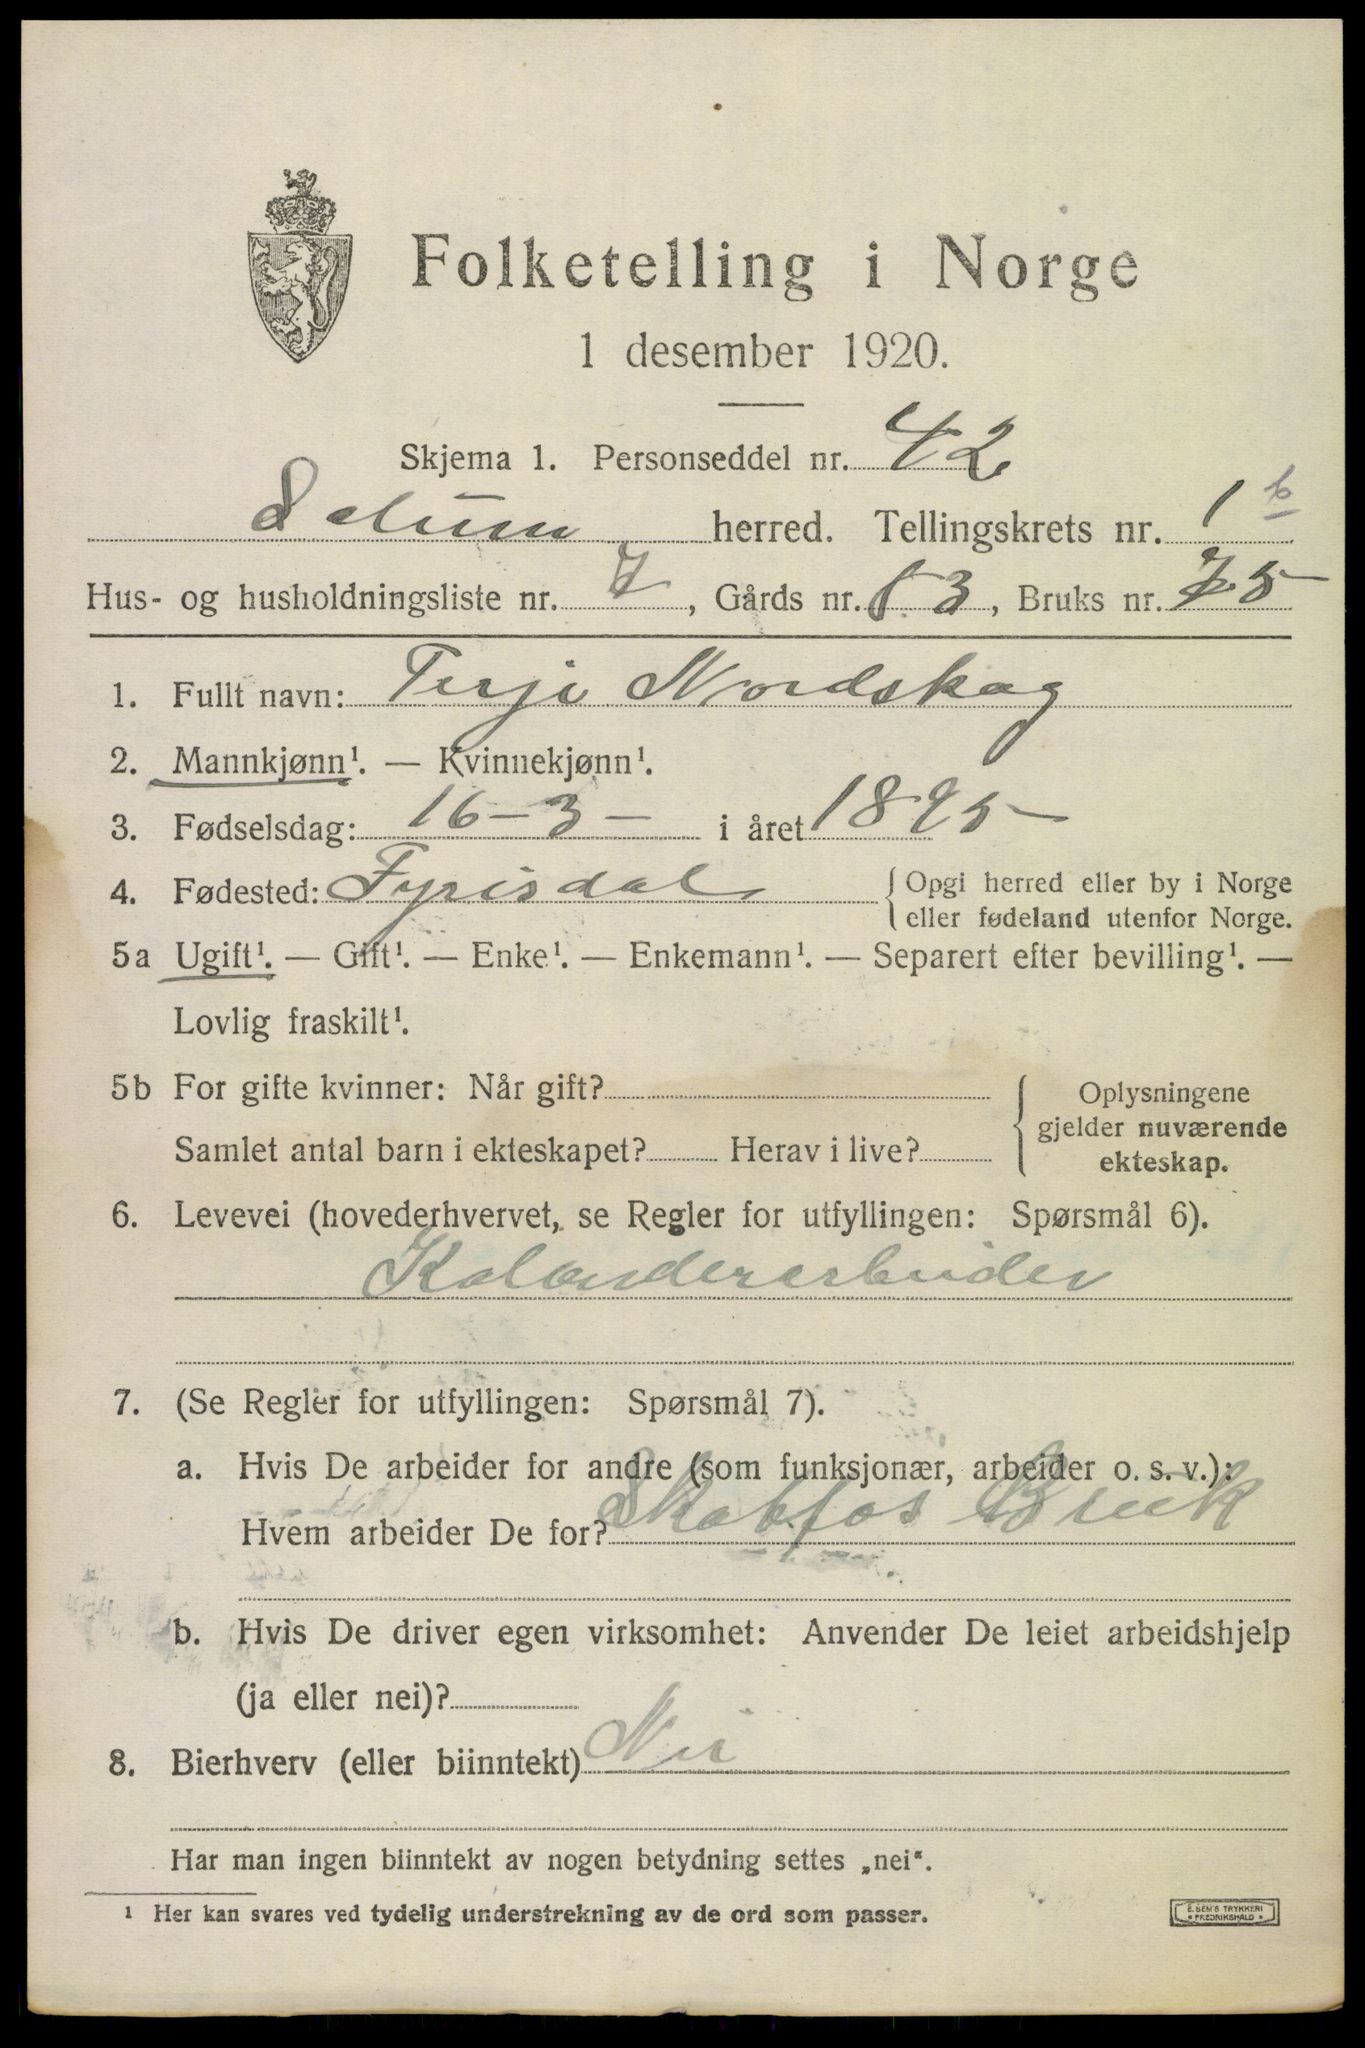 Folketelling i Norge
1 desember 1920.
Skjema 1. Personseddel nr. 42
Solum herred. Tellingskrets nr. 1 b
Hus- og husholdningsliste nr. 7, Gårds nr. 53, Bruks nr. 75
1. Fullt navn: Terje Nordskog
2. Mannkjønn¹. — Kvinnekjønn¹.
3. Fødselsdag: 16-3- i året 1895
4. Fødested: Fyrisdal {Opgi herred eller by i Norge
eller fødeland utenfor Norge.
5a Ugift¹. — Gift¹. — Enke¹. — Enkemann¹. — Separert efter bevilling¹. —
Lovlig fraskilt¹.
5b For gifte kvinner: Når gift?
Samlet antal barn i ekteskapet? Herav i live?
{Oplysningene
gjelder nuværende
ekteskap.
6. Levevei (hovederhvervet, se Regler for utfyllingen: Spørsmål 6).
Kalanderarbeider
7. (Se Regler for utfyllingen: Spørsmål 7).
a. Hvis De arbeider for andre (som funksjonær, arbeider o. s. v.):
Hvem arbeider De for? Skotfos Bruk
b. Hvis De driver egen virksomhet: Anvender De leiet arbeidshjelp
(ja eller nei)?
8. Bierhverv (eller biinntekt) Nei
Har man ingen biinntekt av nogen betydning settes „nei“.
¹ Her kan svares ved tydelig understrekning av de ord som passer.
E. SEM'S TRYKKERI
* FREDRIKSHALD *